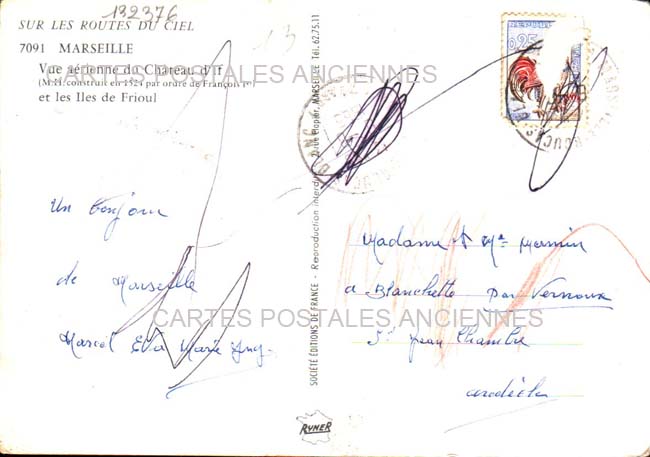 132376
SUR LES ROUTES DU CIEL
7091 MARSEILLE
Vue aérienne du Château d'If
(M.H. construit en 1524 par ordre de François Iᵉʳ)
et les Iles de Frioul
CARTES POSTALES ANCIENNES
Un bonjour
de Marseille
Marcel Eva Marie
SOCIÉTÉ ÉDITIONS DE FRANCE - Reproduction interdite MARSEILLE Tél. 62.75.11
RYNER
0,25
Madame et Mr
a Blanchette par Vernoux
St Jean Chambre
ardèche
CARTES POSTALES ANCIENNES